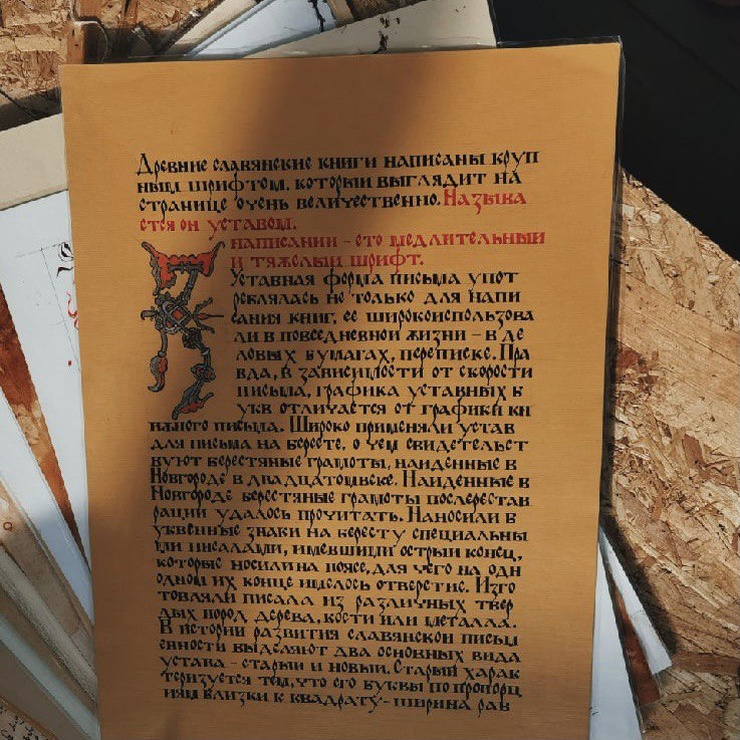 Древние славянские книги написаны круп
ным шрифтом, который выглядит на
странице очень величественно. Называ
ется он уставом.
написании - ето медлительный
и тяжелый шрифт.
Уставная форма письма упот
реблялась не только для напи
сания книг, ее широкоиспользова
ли в повседневной жизни - в де
ловых бумагах, переписке. Пра
вда, в зависимости от скорости
письма, графика уставных б
укв отличается от графики кн
ижного письма. Широко применяли устав
для письма на бересте, о чем свидетельст
вуют берестяные грамоты, найденные в
Новгороде в двадцатомвеке. Найденные в
Новгороде берестяные грамоты послерестав
рации удалось прочитать. Наносили б
уквенные знаки на бересту специальны
ми писалами, имевшими острый конец,
которые носили на поясе, для чего на одн
одном их конце имелось отверстие. Изго
товляли писала из различных твер
дых пород дерева, кости или металла.
В истории развития славянской письм
енности выделяют два основных вида
устава - старый и новый. Старый харак
теризуется тем, что его буквы по пропорц
иям близки к квадрату - ширина рав